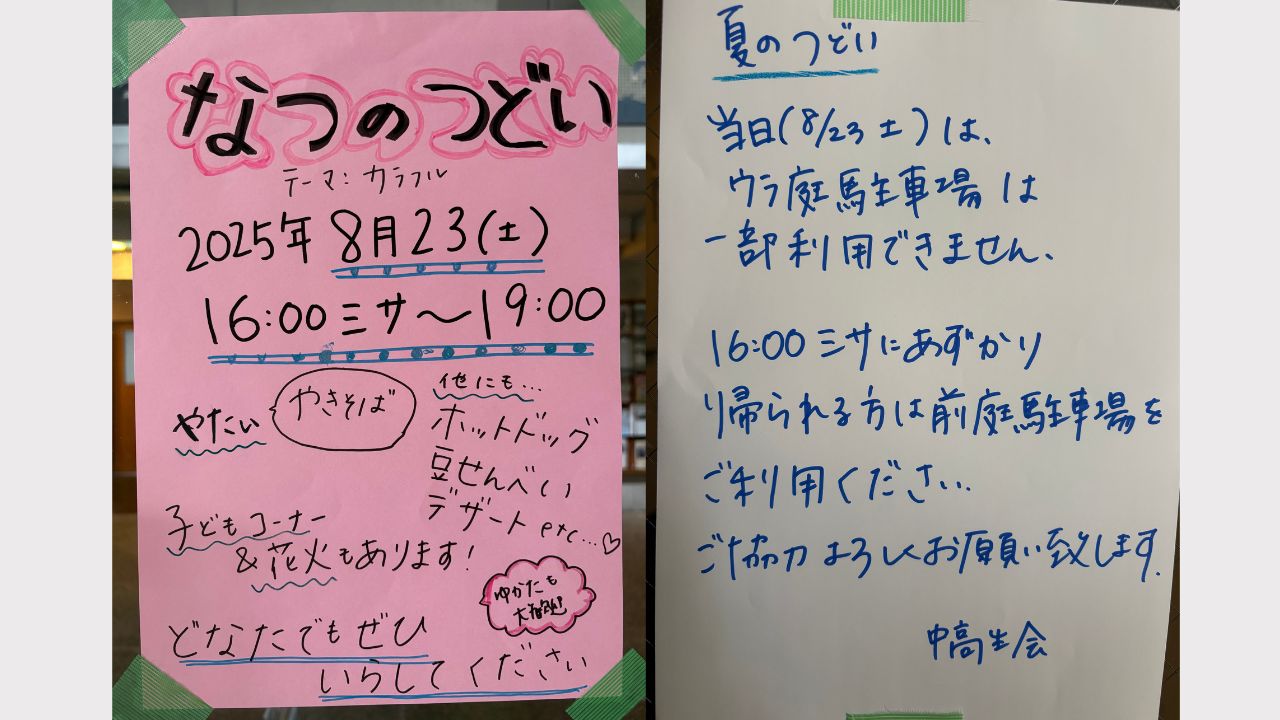 なつのつどい
テーマ：カラフル
2025年 8月23(土)
16:00ミサ〜19:00
やたい
やきそば
他にも…
ホットドッグ
豆せんべい
デザート etc…♡
子どもコーナー
&花火もあります!
ゆかたも
大歓迎!
どなたでもぜひ
いらしてください
夏のつどい
当日(8/23 土)は、
ウラ庭駐車場は
一部利用できません、
16:00ミサにあずかり
り帰られる方は前庭駐車場を
ご利用ください.
ご協力よろしくお願い致します.
中高生会